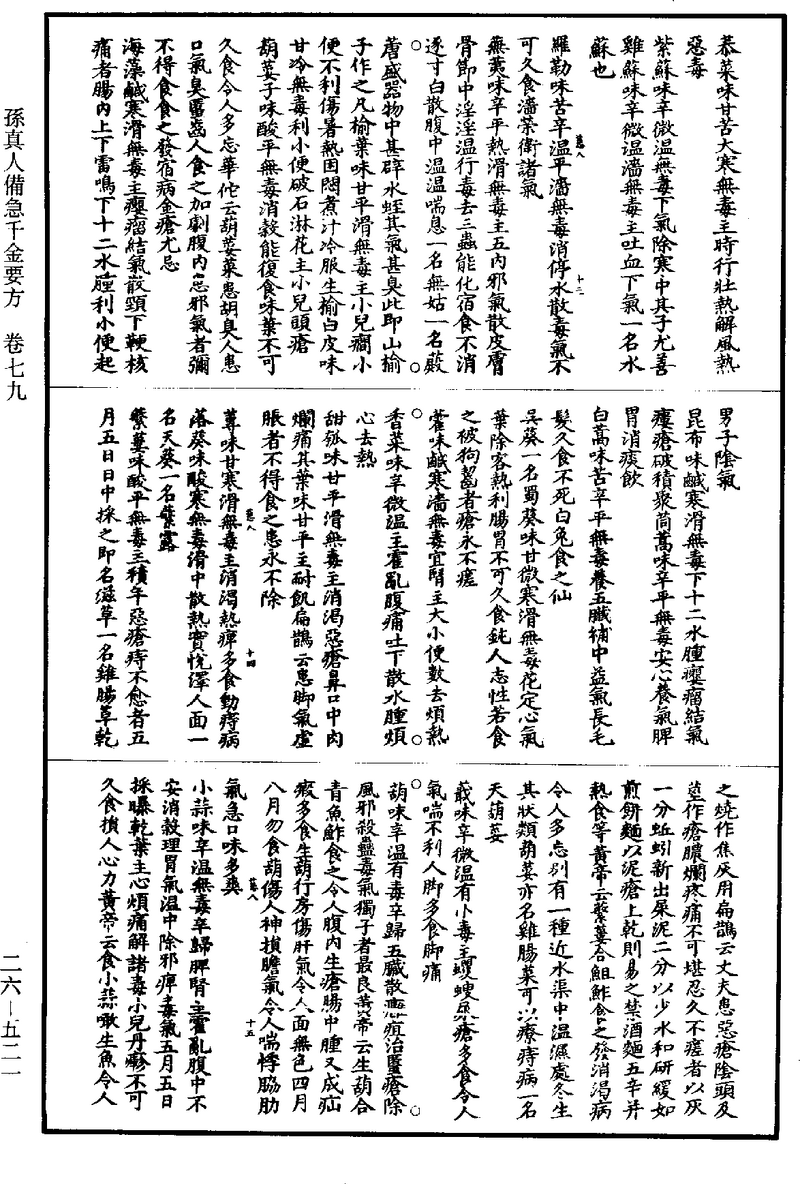 孫真人備急千金要方　卷七九
二六—五二一
菾菜味甘苦大寒無毒主時行壯熱解風熱
惡毒
紫蘇味辛微溫無毒下氣除寒中其子尤善
雞蘇味辛微溫濇無毒主吐血下氣一名水
蘇也
羅勒味苦辛溫平濇無毒消停水散毒氣不
可久食濇榮衛諸氣
蕪荑味辛平熱滑無毒主五內邪氣散皮膚
骨節中淫淫溫行毒去三蟲能化宿食不消
逐寸白散腹中溫溫喘息一名無姑一名蕨
蓎盛器物中甚辟水蛭其氣甚臭此即山榆
子作之凡榆葉味甘平滑無毒主小兒癇小
便不利傷暑熱困悶煮汁冷服生榆白皮味
甘冷無毒利小便破石淋花主小兒頭瘡
葫荽子味酸平無毒消穀能復食味葉不可
久食令人多忘華佗云葫荽菜患胡臭人患
口氣臭䘌齒人食之加劇腹內患邪氣者彌
不得食食之發宿病金瘡尤忌
海藻鹹寒滑無毒主癭瘤結氣散頸下鞕核
痛者腸內上下雷鳴下十二水腫利小便起
男子陰氣
昆布味鹹寒滑無毒下十二水腫癭瘤結氣
瘻瘡破積聚茼蒿味辛平無毒安心養氣脾
胃消痰飲
白蒿味苦辛平無毒養五臟補中益氣長毛
髮久食不死白兔食之仙
吳葵一名蜀葵味甘微寒滑無毒花定心氣
葉除客熱利腸胃不可久食鈍人志性若食
之被狗齧者瘡永不瘥
藿味鹹寒濇無毒宜腎主大小便數去煩熱
香菜味辛微溫主霍亂腹痛吐下散水腫煩
心去熱
甜瓠味甘平滑無毒主消渴惡瘡鼻口中肉
爛痛其葉味甘平主耐飢扁鵲云患脚氣虛
脹者不得食之患永不除
蓴味甘寒滑無毒主消渴熱痺多食動痔病
落葵味酸寒無毒滑中散熱實悅澤人面一
名天葵一名蘩露
蘩蔞味酸平無毒主積年惡瘡痔不愈者五
月五日日中採之即名滋草一名雞腸草乾
之燒作焦灰用扁鵲云丈夫患惡瘡陰頭及
莖作瘡膿爛疼痛不可堪忍久不瘥者以灰
一分蚯蚓新出屎泥二分以少水和研緩如
煎餅麵以泥瘡上乾則易之禁酒麵五辛并
熱食等黃帝云蘩蔞合䱉鮓食之發消渴病
令人多忘別有一種近水渠中溫濕處冬生
其狀類葫荽亦名雞腸菜可以療痔病一名
天葫荽
蕺味辛微溫有小毒主蠼螋尿瘡多食令人
氣喘不利人脚多食脚痛
葫味辛溫有毒辛歸五臟散癰疽治䘌瘡除
風邪殺蠱毒氣獨子者最良黃帝云生葫合
青魚鮓食之令人腹內生瘡腸中腫又成疝
瘕多食生葫行房傷肝氣令人面無色四月
八月勿食葫傷人神損膽氣令人喘悸脇肋
氣急口味多爽
小蒜味辛溫無毒辛歸脾腎主霍亂腹中不
安消穀理胃氣溫中除邪痺毒氣五月五日
採曝乾葉主心煩痛解諸毒小兒丹瘮不可
久食損人心力黃帝云食小蒜噉生魚令人